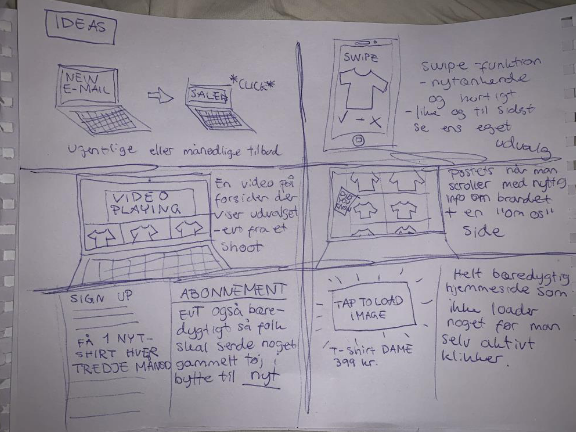 IDEAS
NEW
E-MAIL
SALE!!
*CLICK*
Ugentlige eller månedlige tilbud
SWIPE
V - X
Swipe-funktion
- nytænkende
og hurtigt
- like og til sidst
se ens eget
udvalg
VIDEO
PLAYING
En video på
forsiden der
viser udvalget
- evt fra et
shoot
postets når man
scroller med nyttig
info om brandet
+ en "om os"
side
SIGN UP
FÅ 1 NY T-
SHIRT HVER
TREDJE MÅNED
ABONNEMENT
Evt også bære-
dygtigt så folk
skal sende noget
gammelt tøj
bytte til nyt
TAP TO LOAD
IMAGE
T-Shirt DAME
399 kr.
Helt bæredygtig
hjemmeside som
ikke loader
noget før man
selv aktivt
klikker.